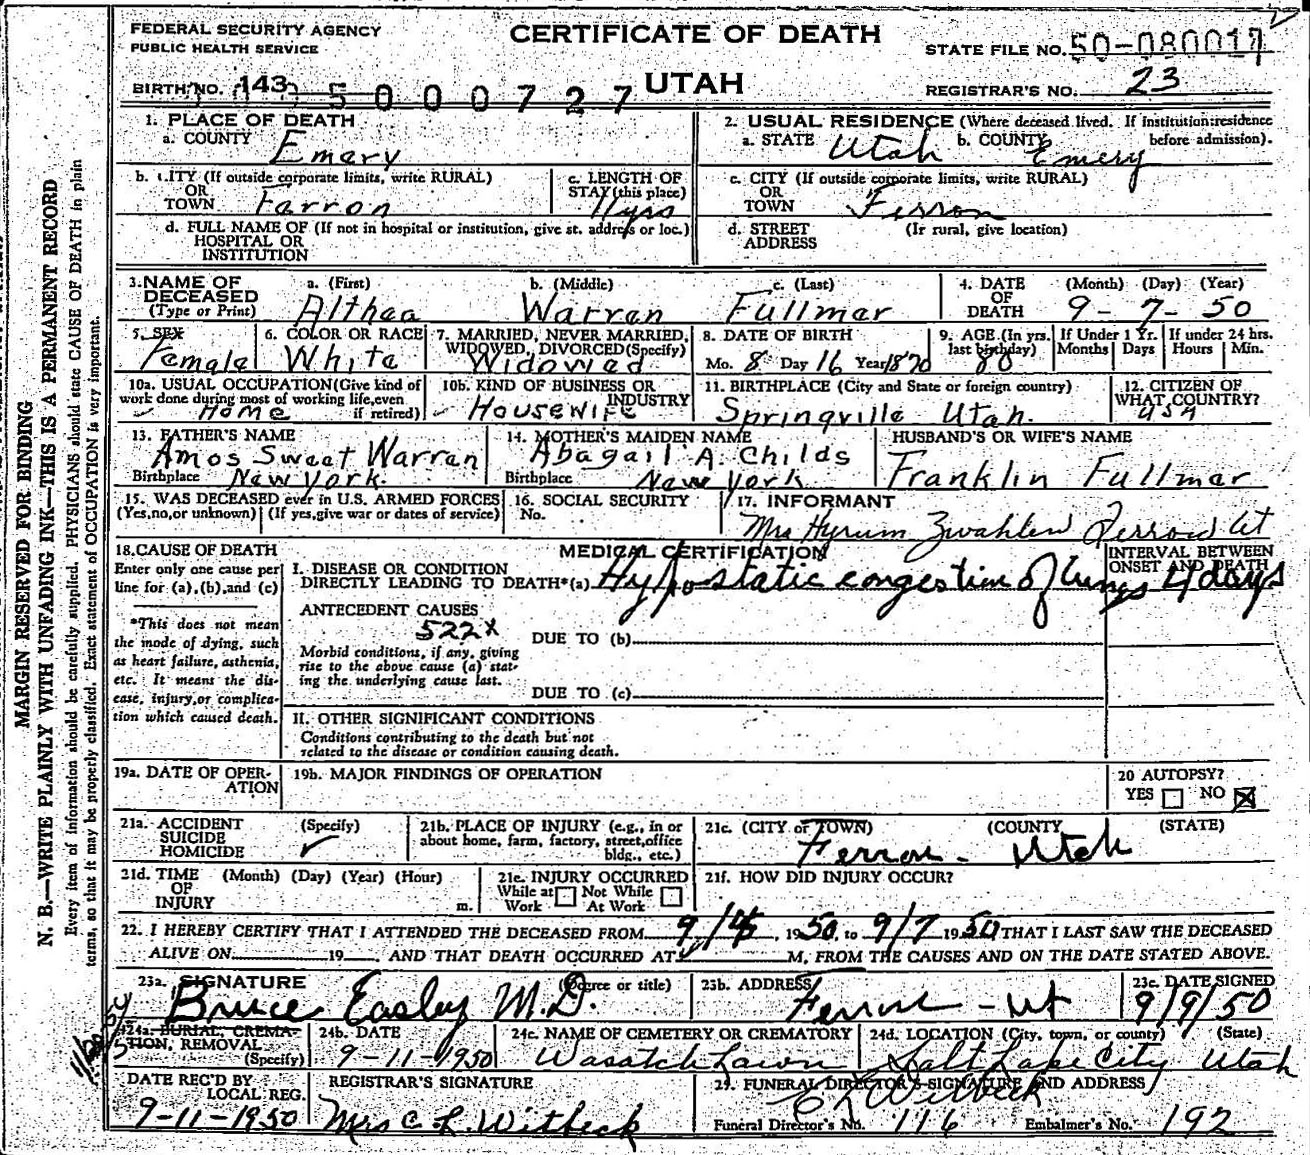 FEDERAL SECURITY AGENCY
PUBLIC HEALTH SERVICE
CERTIFICATE OF DEATH
STATE FILE NO. 50-080017
BIRTH NO. 143 5000727
UTAH
REGISTRAR'S NO. 23
1. PLACE OF DEATH
a. COUNTY Emery
2. USUAL RESIDENCE (Where deceased lived. If institution: residence before admission).
a. STATE Utah b. COUNTY Emery
b. CITY (If outside corporate limits, write RURAL)
OR
TOWN Farron
c. LENGTH OF
STAY (this place)
11yrs
c. CITY (If outside corporate limits, write RURAL)
OR
TOWN Ferron
d. FULL NAME OF (If not in hospital or institution, give st. address or loc.)
HOSPITAL OR
INSTITUTION
d. STREET (If rural, give location)
ADDRESS
3. NAME OF
DECEASED
(Type or Print)
a. (First) Althea
b. (Middle) Warren
c. (Last) Fullmer
4. DATE
OF
DEATH
(Month) (Day) (Year)
9- 7- 50
5. SEX
Female
6. COLOR OR RACE
White
7. MARRIED, NEVER MARRIED,
WIDOWED, DIVORCED (Specify)
Widowed
8. DATE OF BIRTH
Mo. 8 Day 16 Year 1870
9. AGE (In yrs.
last birthday)
80
If Under 1 Yr.
Months Days
If under 24 hrs.
Hours Min.
10a. USUAL OCCUPATION (Give kind of
work done during most of working life, even
if retired)
Home
10b. KIND OF BUSINESS OR
INDUSTRY
Housewife
11. BIRTHPLACE (City and State or foreign country)
Springville Utah.
12. CITIZEN OF
WHAT COUNTRY?
USA
13. FATHER'S NAME
Amos Sweet Warren
Birthplace New York.
14. MOTHER'S MAIDEN NAME
Abagail A. Childs
Birthplace New York
HUSBAND'S OR WIFE'S NAME
Franklin Fullmer
15. WAS DECEASED ever in U.S. ARMED FORCES
(Yes, no, or unknown) (If yes, give war or dates of service)
16. SOCIAL SECURITY
No.
17. INFORMANT
Mrs Hyrum Zwahlen Ferron Ut
18. CAUSE OF DEATH
Enter only one cause per
line for (a), (b), and (c)
*This does not mean
the mode of dying, such
as heart failure, asthenia,
etc. It means the dis-
ease, injury, or complica-
tion which caused death.
MEDICAL CERTIFICATION
INTERVAL BETWEEN
ONSET AND DEATH
I. DISEASE OR CONDITION
DIRECTLY LEADING TO DEATH*(a) Hypostatic congestion of lungs 4 days
ANTECEDENT CAUSES
522x
DUE TO (b)
Morbid conditions, if any, giving
rise to the above cause (a) stat-
ing the underlying cause last.
DUE TO (c)
II. OTHER SIGNIFICANT CONDITIONS
Conditions contributing to the death but not
related to the disease or condition causing death.
19a. DATE OF OPER-
ATION
19b. MAJOR FINDINGS OF OPERATION
20 AUTOPSY?
YES NO
21a. ACCIDENT (Specify)
SUICIDE
HOMICIDE
21b. PLACE OF INJURY (e.g., in or
about home, farm, factory, street, office
bldg., etc.)
21c. (CITY or TOWN) (COUNTY (STATE)
Ferron - Utah
21d. TIME (Month) (Day) (Year) (Hour)
OF
INJURY m.
21e. INJURY OCCURRED
While at Not While
Work At Work
21f. HOW DID INJURY OCCUR?
22. I HEREBY CERTIFY THAT I ATTENDED THE DECEASED FROM 9/ , 1950, to 9/7 1950 THAT I LAST SAW THE DECEASED
ALIVE ON 19 , AND THAT DEATH OCCURRED AT M, FROM THE CAUSES AND ON THE DATE STATED ABOVE.
23a. SIGNATURE (Degree or title)
Bruce Easley M.D.
23b. ADDRESS
Ferron - Ut
23c. DATE SIGNED
9/9/50
24a. BURIAL, CREMA-
TION, REMOVAL
(Specify)
24b. DATE
9-11-1950
24c. NAME OF CEMETERY OR CREMATORY
Wasatch Lawn
24d. LOCATION (City, town, or county) (State)
Salt Lake City Utah
DATE REC'D BY
LOCAL REG.
9-11-1950
REGISTRAR'S SIGNATURE
Mrs C. L. Witbeck
25. FUNERAL DIRECTOR'S SIGNATURE AND ADDRESS
C L Witbeck
Funeral Director's No. 116 Embalmer's No. 192
MARGIN RESERVED FOR BINDING
N. B.—WRITE PLAINLY WITH UNFADING INK—THIS IS A PERMANENT RECORD
Every item of information should be carefully supplied. PHYSICIANS should state CAUSE OF DEATH in plain
terms, so that it may be properly classified. Exact statement of OCCUPATION is very important.